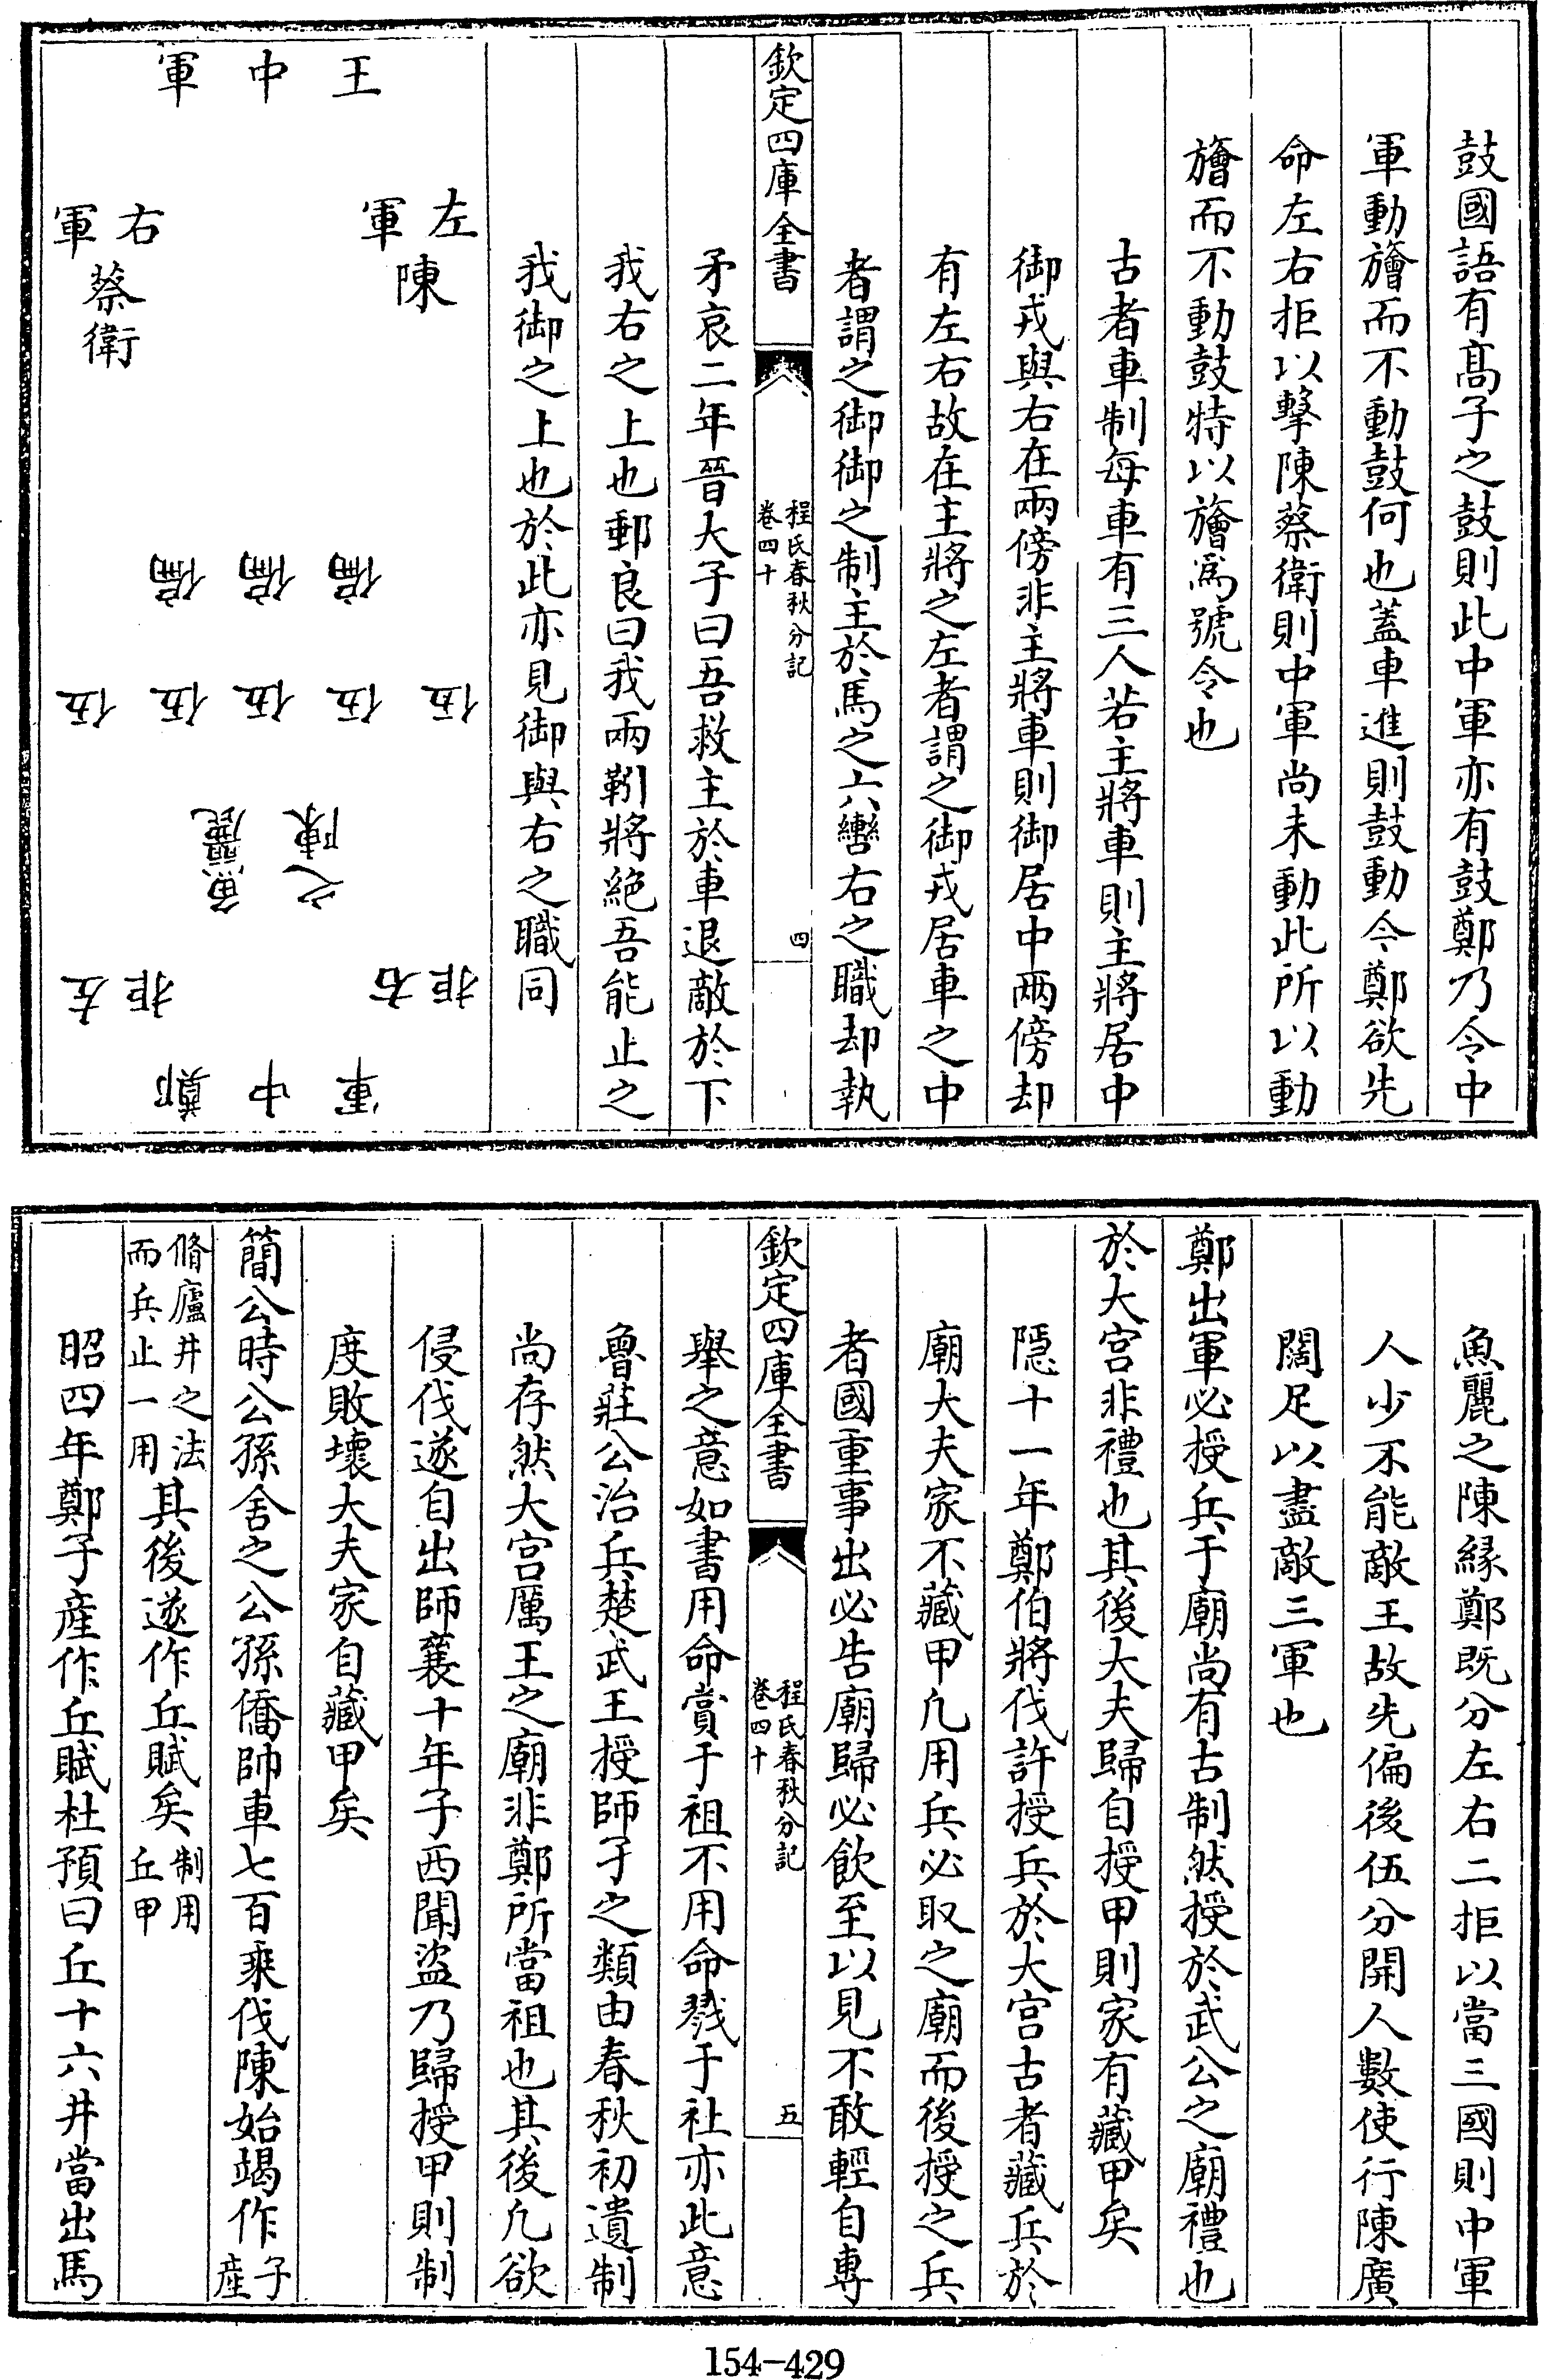 鼓國語有髙子之鼓則此中軍亦有鼓鄭乃令中
軍動旝而不動鼓何也蓋車進則鼓動今鄭欲先
命左右拒以擊陳蔡衛則中軍尚未動此所以動
旝而不動鼓特以旝爲號令也
古者車制每車有三人若主將車則主將居中
御戎與右在兩傍非主將車則御居中兩傍却
有左右故在主將之左者謂之御戎居車之中
者謂之御御之制主於馬之六轡右之職却執
欽定四庫全書
程氏春秋分記
卷四十
四
矛哀二年晉大子曰吾救主於車退敵於下
我右之上也郵良曰我兩靷將絶吾能止之
我御之上也於此亦見御與右之職同
王中軍
左軍
陳
右軍
蔡衛
偏偏偏
伍伍伍伍伍
魚麗之陳
右拒
左拒
鄭中軍
魚麗之陳縁鄭既分左右二拒以當三國則中軍
人少不能敵王故先偏後伍分開人數使行陳廣
闊足以盡敵三軍也
鄭出軍必授兵于廟尚有古制然授於武公之廟禮也
於大宫非禮也其後大夫歸自授甲則家有藏甲矣
隱十一年鄭伯將伐許授兵於大宫古者藏兵於
廟大夫家不藏甲凡用兵必取之廟而後授之兵
者國重事出必告廟歸必飲至以見不敢輕自專
欽定四庫全書
程氏春秋分記
卷四十
五
舉之意如書用命賞于祖不用命戮于社亦此意
魯莊公治兵楚武王授師孑之類由春秋初遺制
尚存然大宫厲王之廟非鄭所當祖也其後凡欲
侵伐遂自出師襄十年子西聞盜乃歸授甲則制
度敗壞大夫家自藏甲矣
簡公時公孫舍之公孫僑帥車七百乘伐陳始竭作子産
脩廬井之法而兵止一用其後遂作丘賦矣制用丘甲
昭四年鄭子産作丘賦杜預曰丘十六井當出馬
154-429